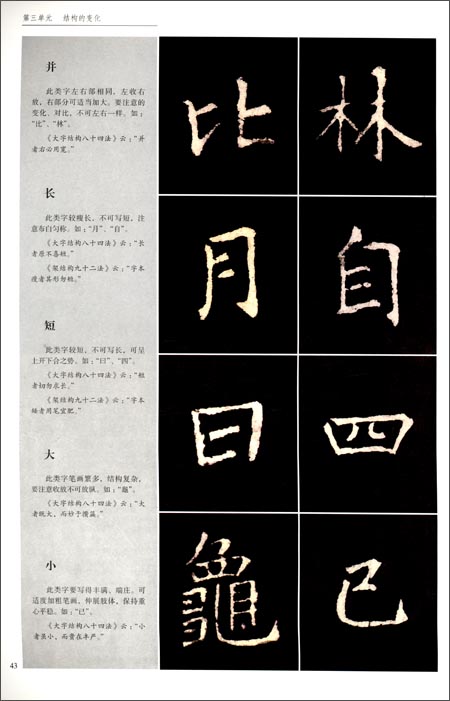 第三单元 结构的变化
并
此类字左右部相同，左收右
放，右部分可适当加大。要注意的
变化、对比，不可左右一样。如：
“比”、“林”。
《大字结构八十四法》云：“并
者右必用宽。”
长
此类字较瘦长，不可写短，注
意布白匀称。如：“月”、“自”。
《大字结构八十四法》云：“长
者原不喜短。”
《架结构九十二法》云：“字本
瘦者其形勿短。”
短
此类字较短，不可写长，可呈
上开下合之势。如：“曰”、“四”。
《大字结构八十四法》云：“短
者切勿求长。”
《架结构九十二法》云：“字本
矮者用笔宜肥。”
大
此类字笔画繁多，结构复杂，
要注意收放不可放纵。如：“龜”。
《大字结构八十四法》云：“大
者既大，而妙于攒簇。”
小
此类字要写得丰满、端庄。可
适度加粗笔画，伸展肢体，保持重
心平稳。如：“已”。
《大字结构八十四法》云：“小
者虽小，而贵在丰严。”
43
比 林
月 自
曰 四
龜 已